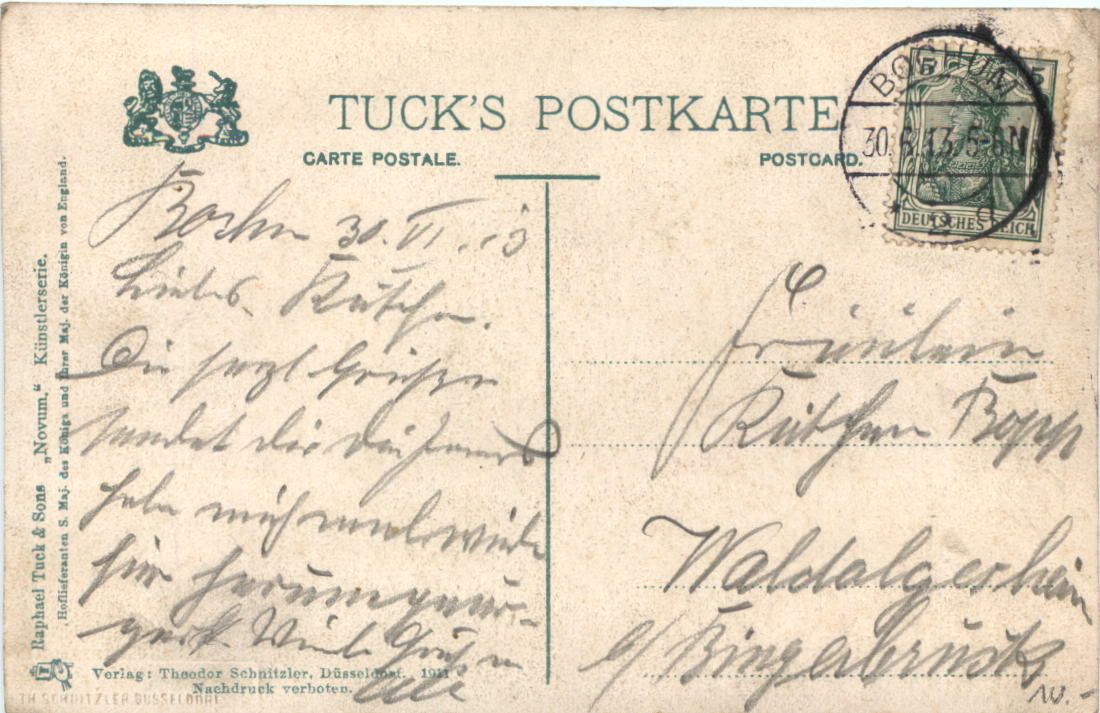 TUCK'S POSTKARTE
CARTE POSTALE.
POSTCARD.
BOCHUM
30.6.13.5-6N
5 5
DEUTSCHES REICH
Raphael Tuck & Sons „Novum,“ Künstlerserie.
Hoflieferanten S. Maj. des Königs und Ihrer Maj. der Königin von England.
30. VI. 13
Liebes Käthchen.
Die herzl Grüßen
sendet dir
habe mich mal wieder
hier
Viele Grüße
Fräulein
Käthchen Bopp
Waldalgesheim
b/ Bingerbrück
Verlag: Theodor Schnitzler, Düsseldorf. 1911
Nachdruck verboten.
TH. SCHNITZLER DÜSSELDORF